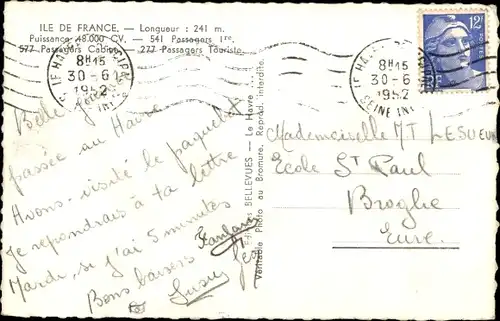 ILE DE FRANCE. — Longueur : 241 m.
Puissance 48.000 CV. — 541 Passagers 1re.
577 Passagers Cabine — 277 Passagers Touriste.
8H15
30-6
1952
LE HAVRE
8H15
30-6
1952
SEINE INF
12F
Belle journée
passée au Havre
Avons visité le paquebot
Je répondrais à ta lettre
Mardi, si j'ai 5 minutes
Bons baisers
Editions BELLEVUES — Le Havre
Véritable Photo au Bromure. Reprod. interdite.
Mademoiselle MT LESUEUR
Ecole St Paul
Broglie
Eure.